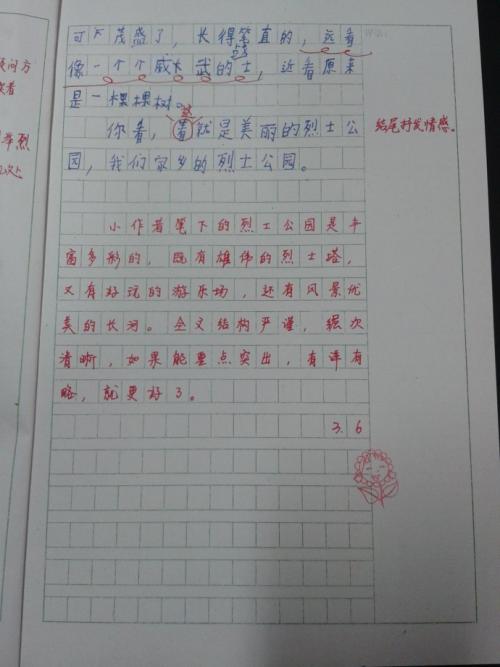 可下茂盛了，长得笔直的，远看
像一个个威武的士，近看原来
是一棵棵树。
这
你看，着就是美丽的烈士公
园，我们家乡的烈士公园。
结尾抒发情感。
问方
举烈
小作者笔下的烈士公园是丰
富多彩的，既有雄伟的烈士塔，
又有好玩的游乐场，还有风景优
美的长河。全文结构严谨，层次
清晰，如果能重点突出，有详有
略，就更好了。
3.6